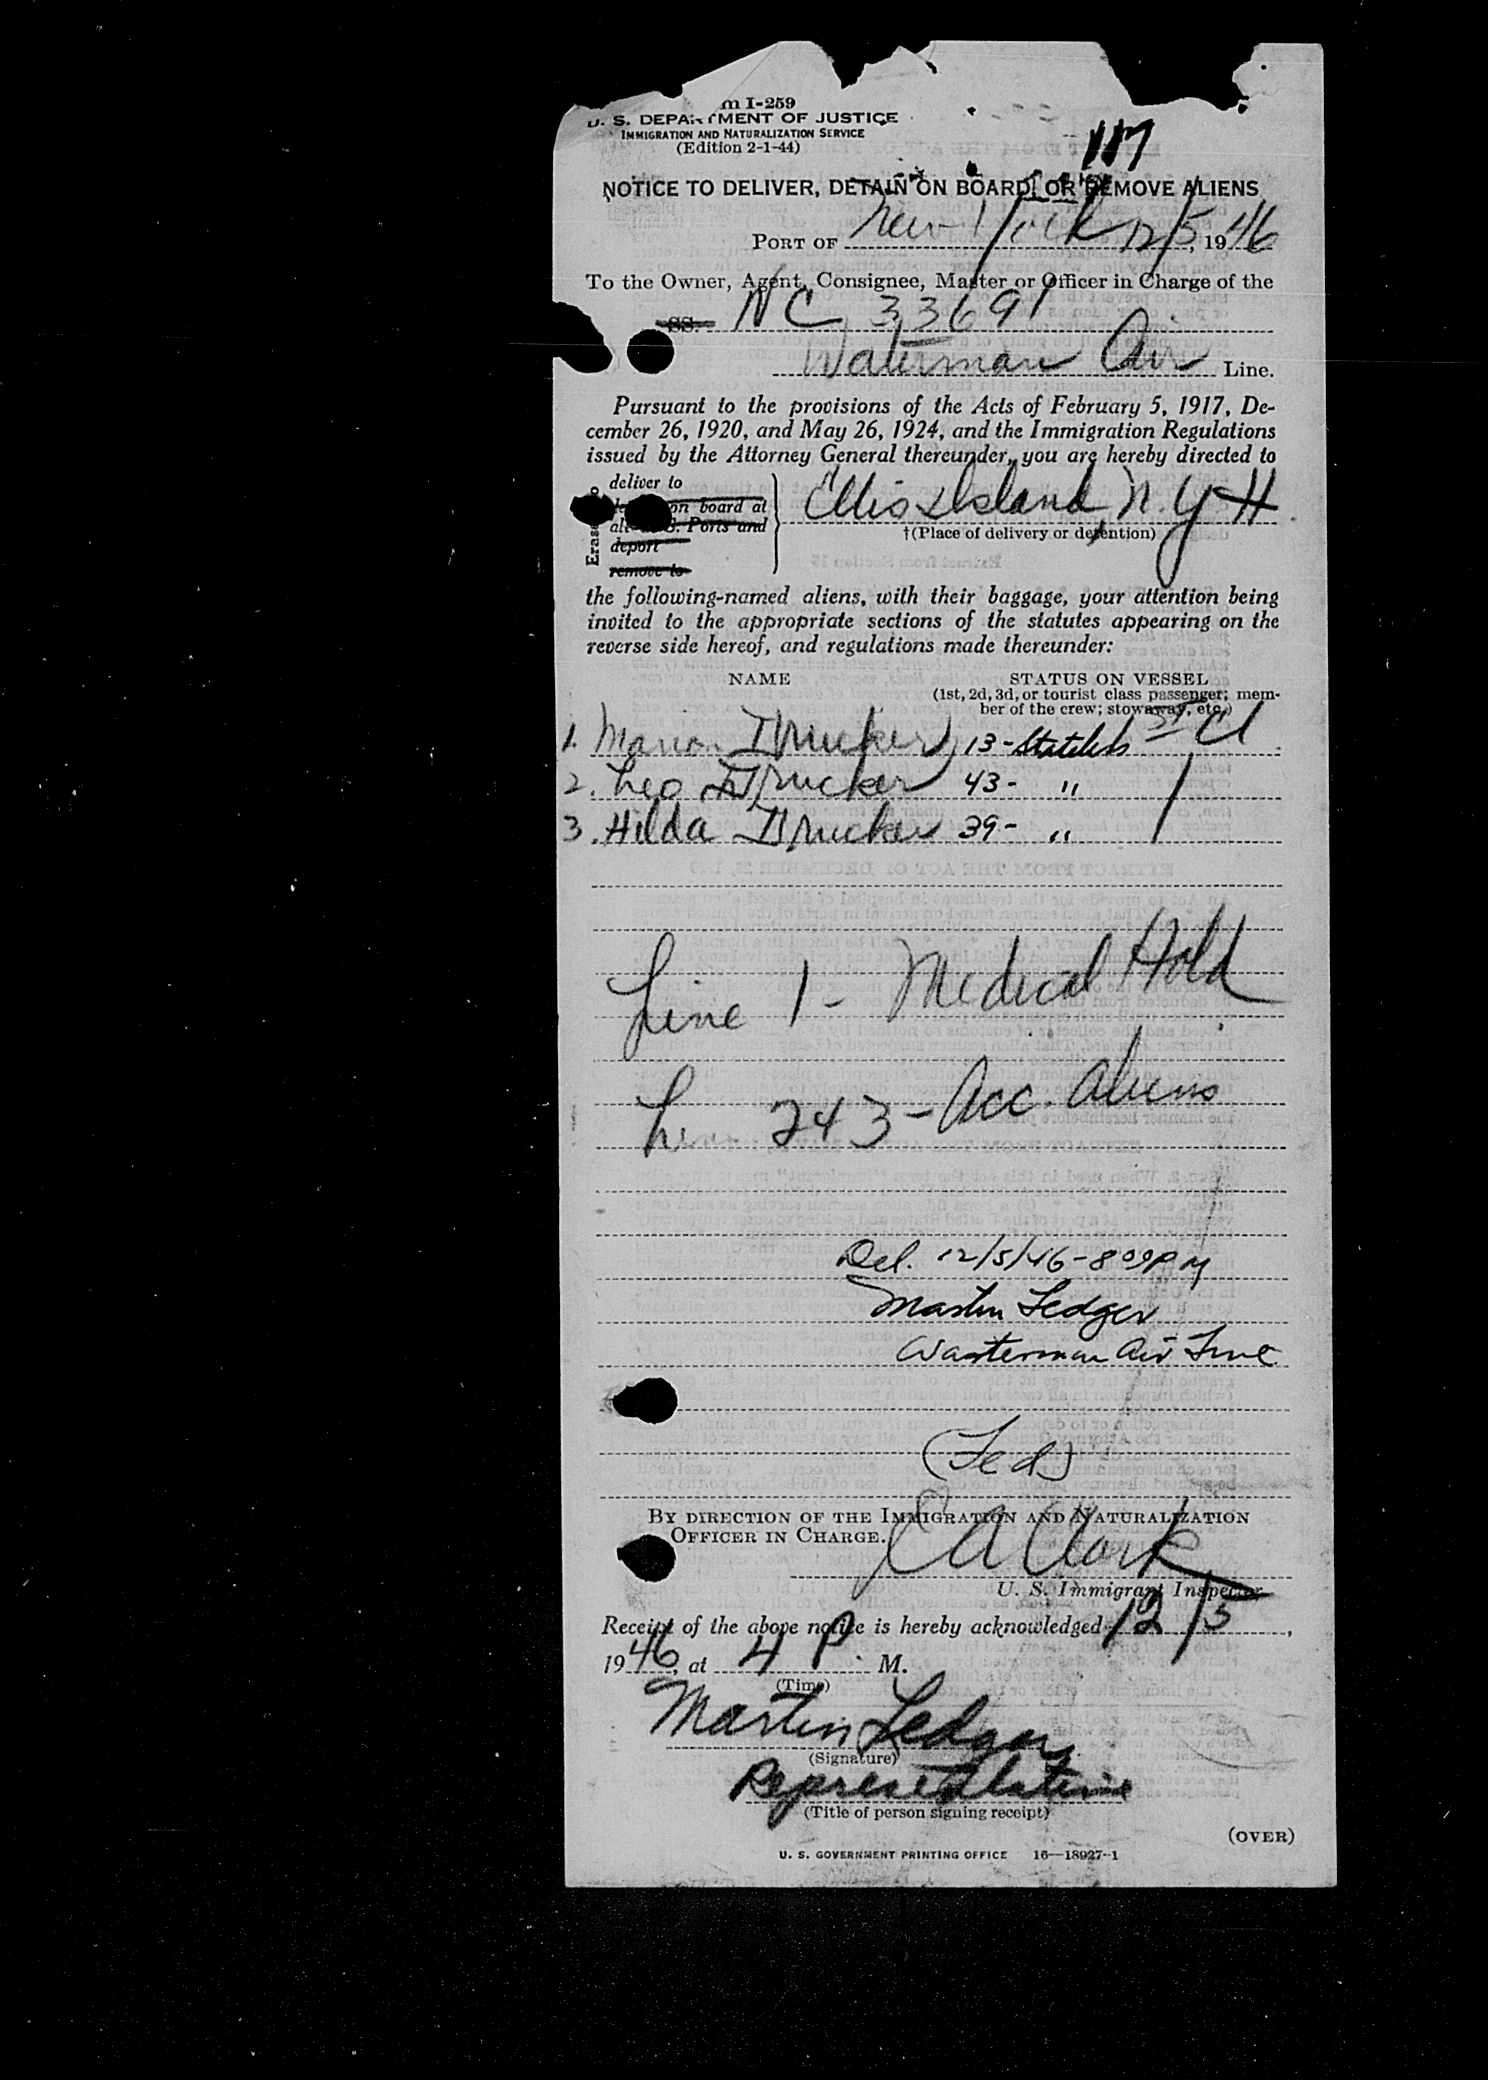 m I-259
U. S. DEPARTMENT OF JUSTICE
IMMIGRATION AND NATURALIZATION SERVICE
(Edition 2-1-44)
117
NOTICE TO DELIVER, DETAIN ON BOARD, OR REMOVE ALIENS
PORT OF New York 12/5, 1946
To the Owner, Agent, Consignee, Master or Officer in Charge of the
SS. NC 33691
Waterman Air Line.
Pursuant to the provisions of the Acts of February 5, 1917, De-
cember 26, 1920, and May 26, 1924, and the Immigration Regulations
issued by the Attorney General thereunder, you are hereby directed to
deliver to
on board at
all U.S. Ports and
deport
remove to
Ellis Island, N.Y.H
†(Place of delivery or detention)
the following-named aliens, with their baggage, your attention being
invited to the appropriate sections of the statutes appearing on the
reverse side hereof, and regulations made thereunder:
NAME STATUS ON VESSEL
(1st, 2d, 3d, or tourist class passenger; mem-
ber of the crew; stowaway, etc.)
1. Marion Drucker 13 - Stateless 1st Cl
2. Leo Drucker 43 - "
3. Hilda Drucker 39 - "
Line 1 - Medical Hold
Line 2+3 - Acc. Aliens
Del. 12/5/46 - 8 00 PM
Martin Ledger
Waterman Air Line
BY DIRECTION OF THE IMMIGRATION AND NATURALIZATION
OFFICER IN CHARGE.
C A Clark
U. S. Immigrant Inspector
Receipt of the above notice is hereby acknowledged 12/5,
1946, at 4 P. M.
(Time)
Martin Ledger
(Signature)
Representative
(Title of person signing receipt)
(OVER)
U. S. GOVERNMENT PRINTING OFFICE 16—18927-1